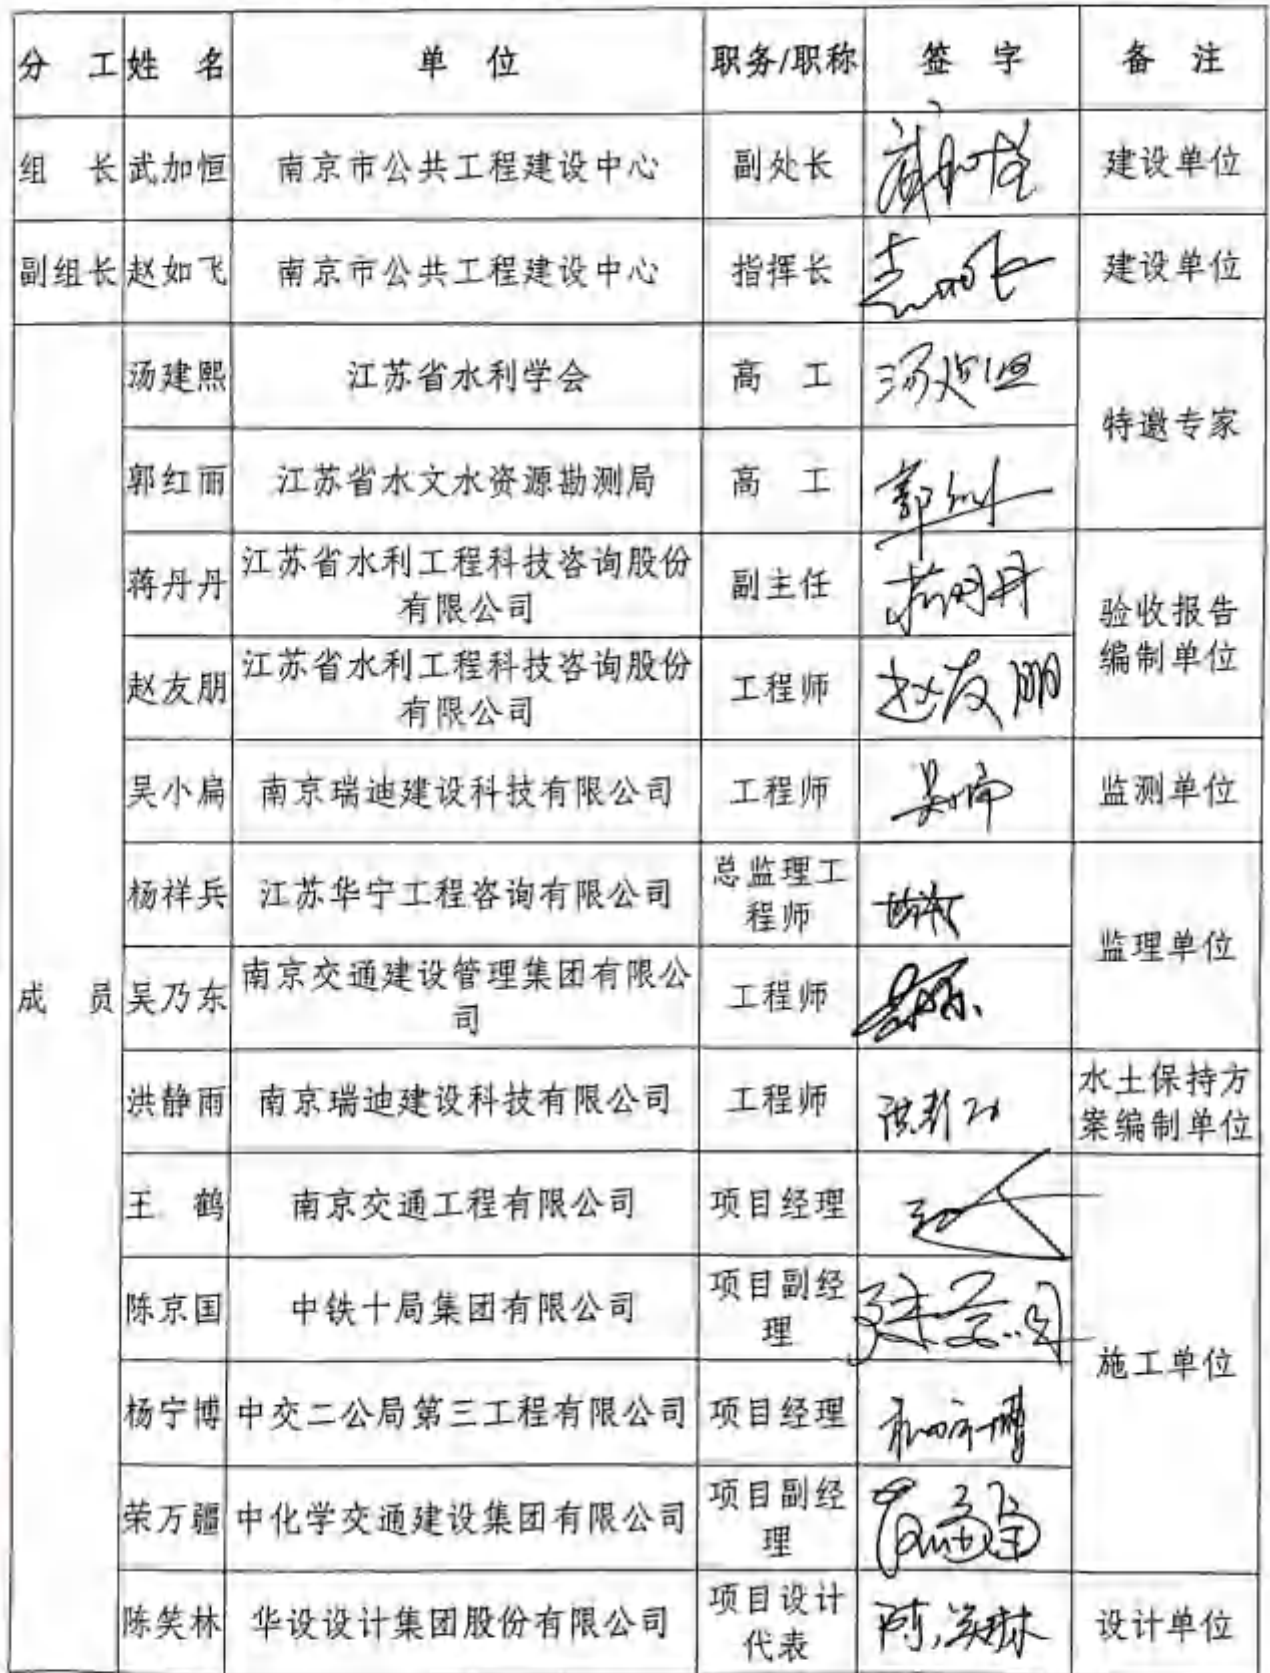 分 工 姓 名 单 位 职务/职称 签 字 备 注
组 长 武加恒 南京市公共工程建设中心 副处长 建设单位
副组长 赵如飞 南京市公共工程建设中心 指挥长 建设单位
汤建熙 江苏省水利学会 高 工
特邀专家
郭红丽 江苏省水文水资源勘测局 高 工
蒋丹丹 江苏省水利工程科技咨询股份
有限公司 副主任 蒋丹丹
验收报告
编制单位
赵友朋 江苏省水利工程科技咨询股份
有限公司 工程师 赵友朋
吴小扁 南京瑞迪建设科技有限公司 工程师 监测单位
杨祥兵 江苏华宁工程咨询有限公司 总监理工
程师
监理单位
成 员 吴乃东 南京交通建设管理集团有限公
司 工程师
洪静雨 南京瑞迪建设科技有限公司 工程师 水土保持方
案编制单位
王 鹤 南京交通工程有限公司 项目经理
陈京国 中铁十局集团有限公司 项目副经
理
施工单位
杨宁博 中交二公局第三工程有限公司 项目经理
荣万疆 中化学交通建设集团有限公司 项目副经
理
陈笑林 华设设计集团股份有限公司 项目设计
代表 陈笑林 设计单位